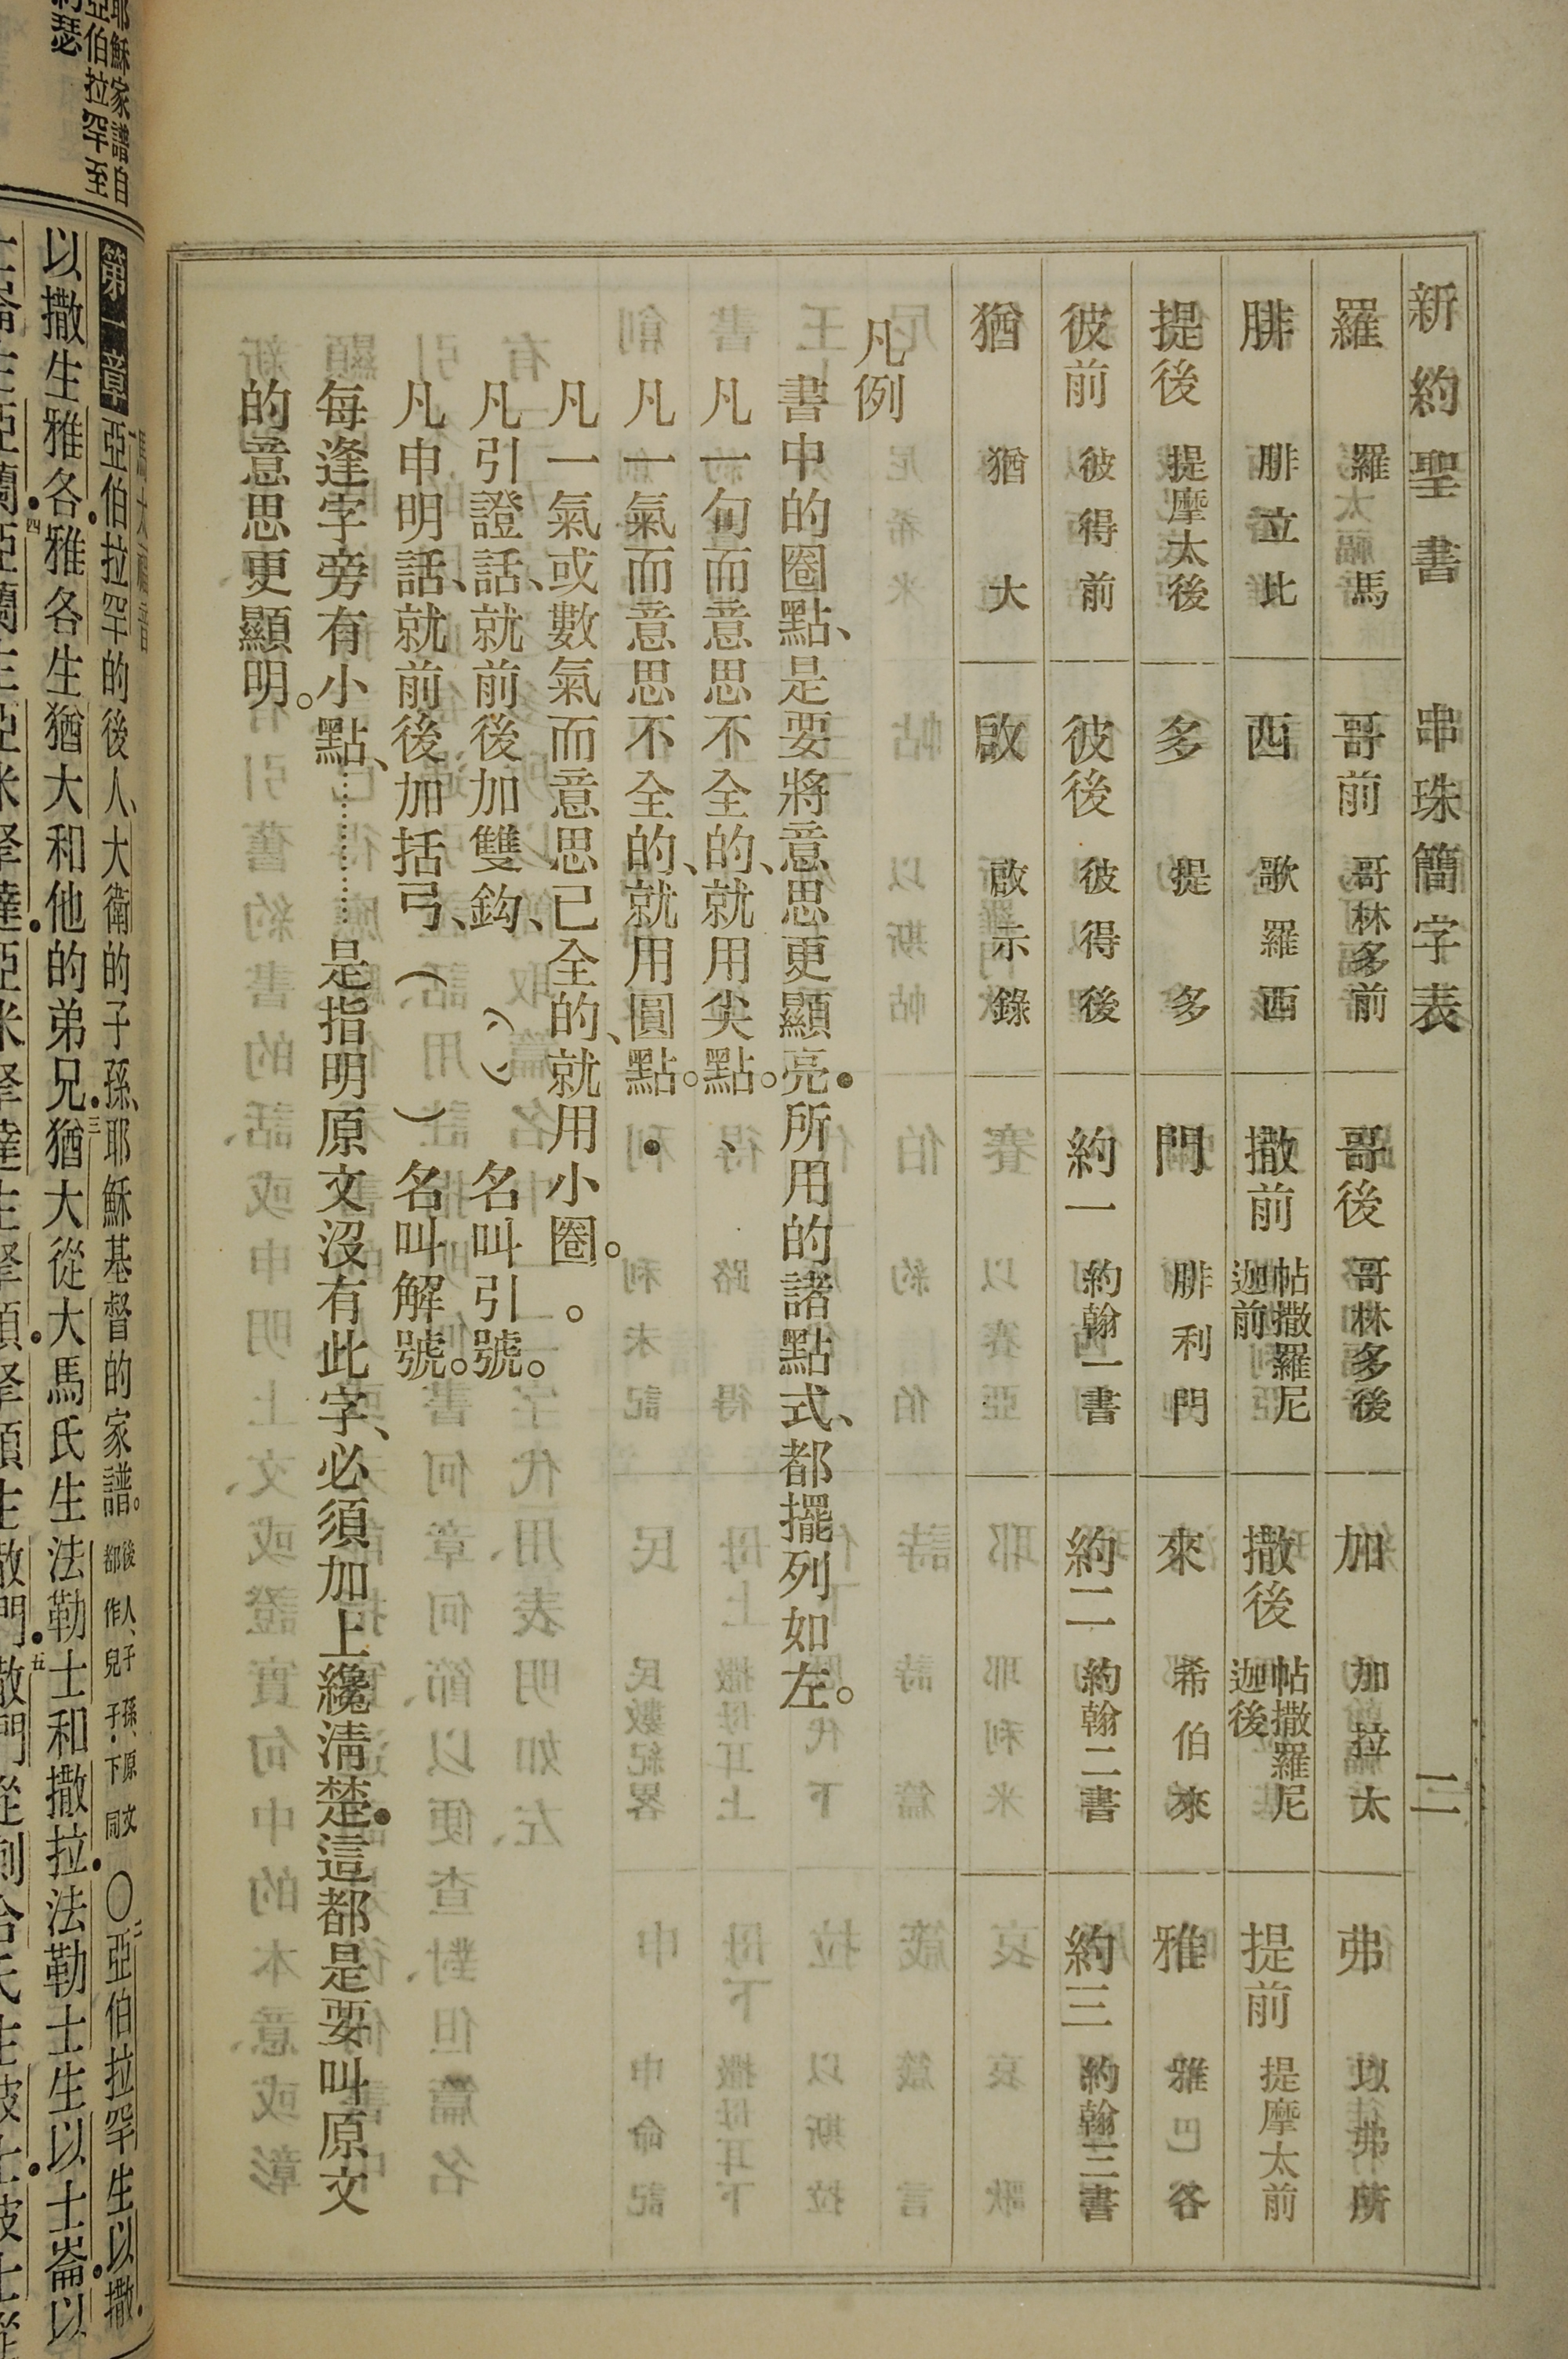 新約聖書 串珠簡字表 二
羅 羅馬 哥前 哥林多前 哥後 哥林多後 加 加拉太 弗 以弗所
腓 腓立比 西 歌羅西 撒前 帖撒羅尼迦前 撒後 帖撒羅尼迦後 提前 提摩太前
提後 提摩太後 多 提多 門 腓利門 來 希伯來 雅 雅巴各
彼前 彼得前 彼後 彼得後 約一 約翰一書 約二 約翰二書 約三 約翰三書
猶 猶大 啟 啟示錄
凡例
書中的圈點、是要將意思更顯亮•所用的諸點式、都擺列如左。
凡一句而意思不全的、就用尖點。、
凡一氣而意思不全的、就用圓點。•
凡一氣或數氣而意思已全的、就用小圈。。
凡引證話、就前後加雙鈎、（（））名叫引號。
凡申明話、就前後加括弓、（ ）名叫解號。
每逢字旁有小點、…………是指明原文沒有此字、必須加上纔清楚•這都是要叫原文
的意思更顯明。
耶穌家譜自
亞伯拉罕至
約瑟
第一章 亞伯拉罕的後人、大衛的子孫、耶穌基督的家譜。後人、子孫、原文都作兒子•下同 〇二亞伯拉罕生以撒•
以撒生雅各•雅各生猶大和他的弟兄•三猶大從大馬氏生法勒士和撒拉•法勒士生以士崙•以